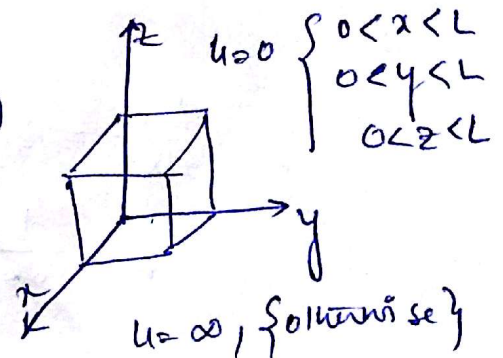 z
u=0 { 0<x<L
0<y<L
0<z<L
y
x
u=∞, {otherwise}